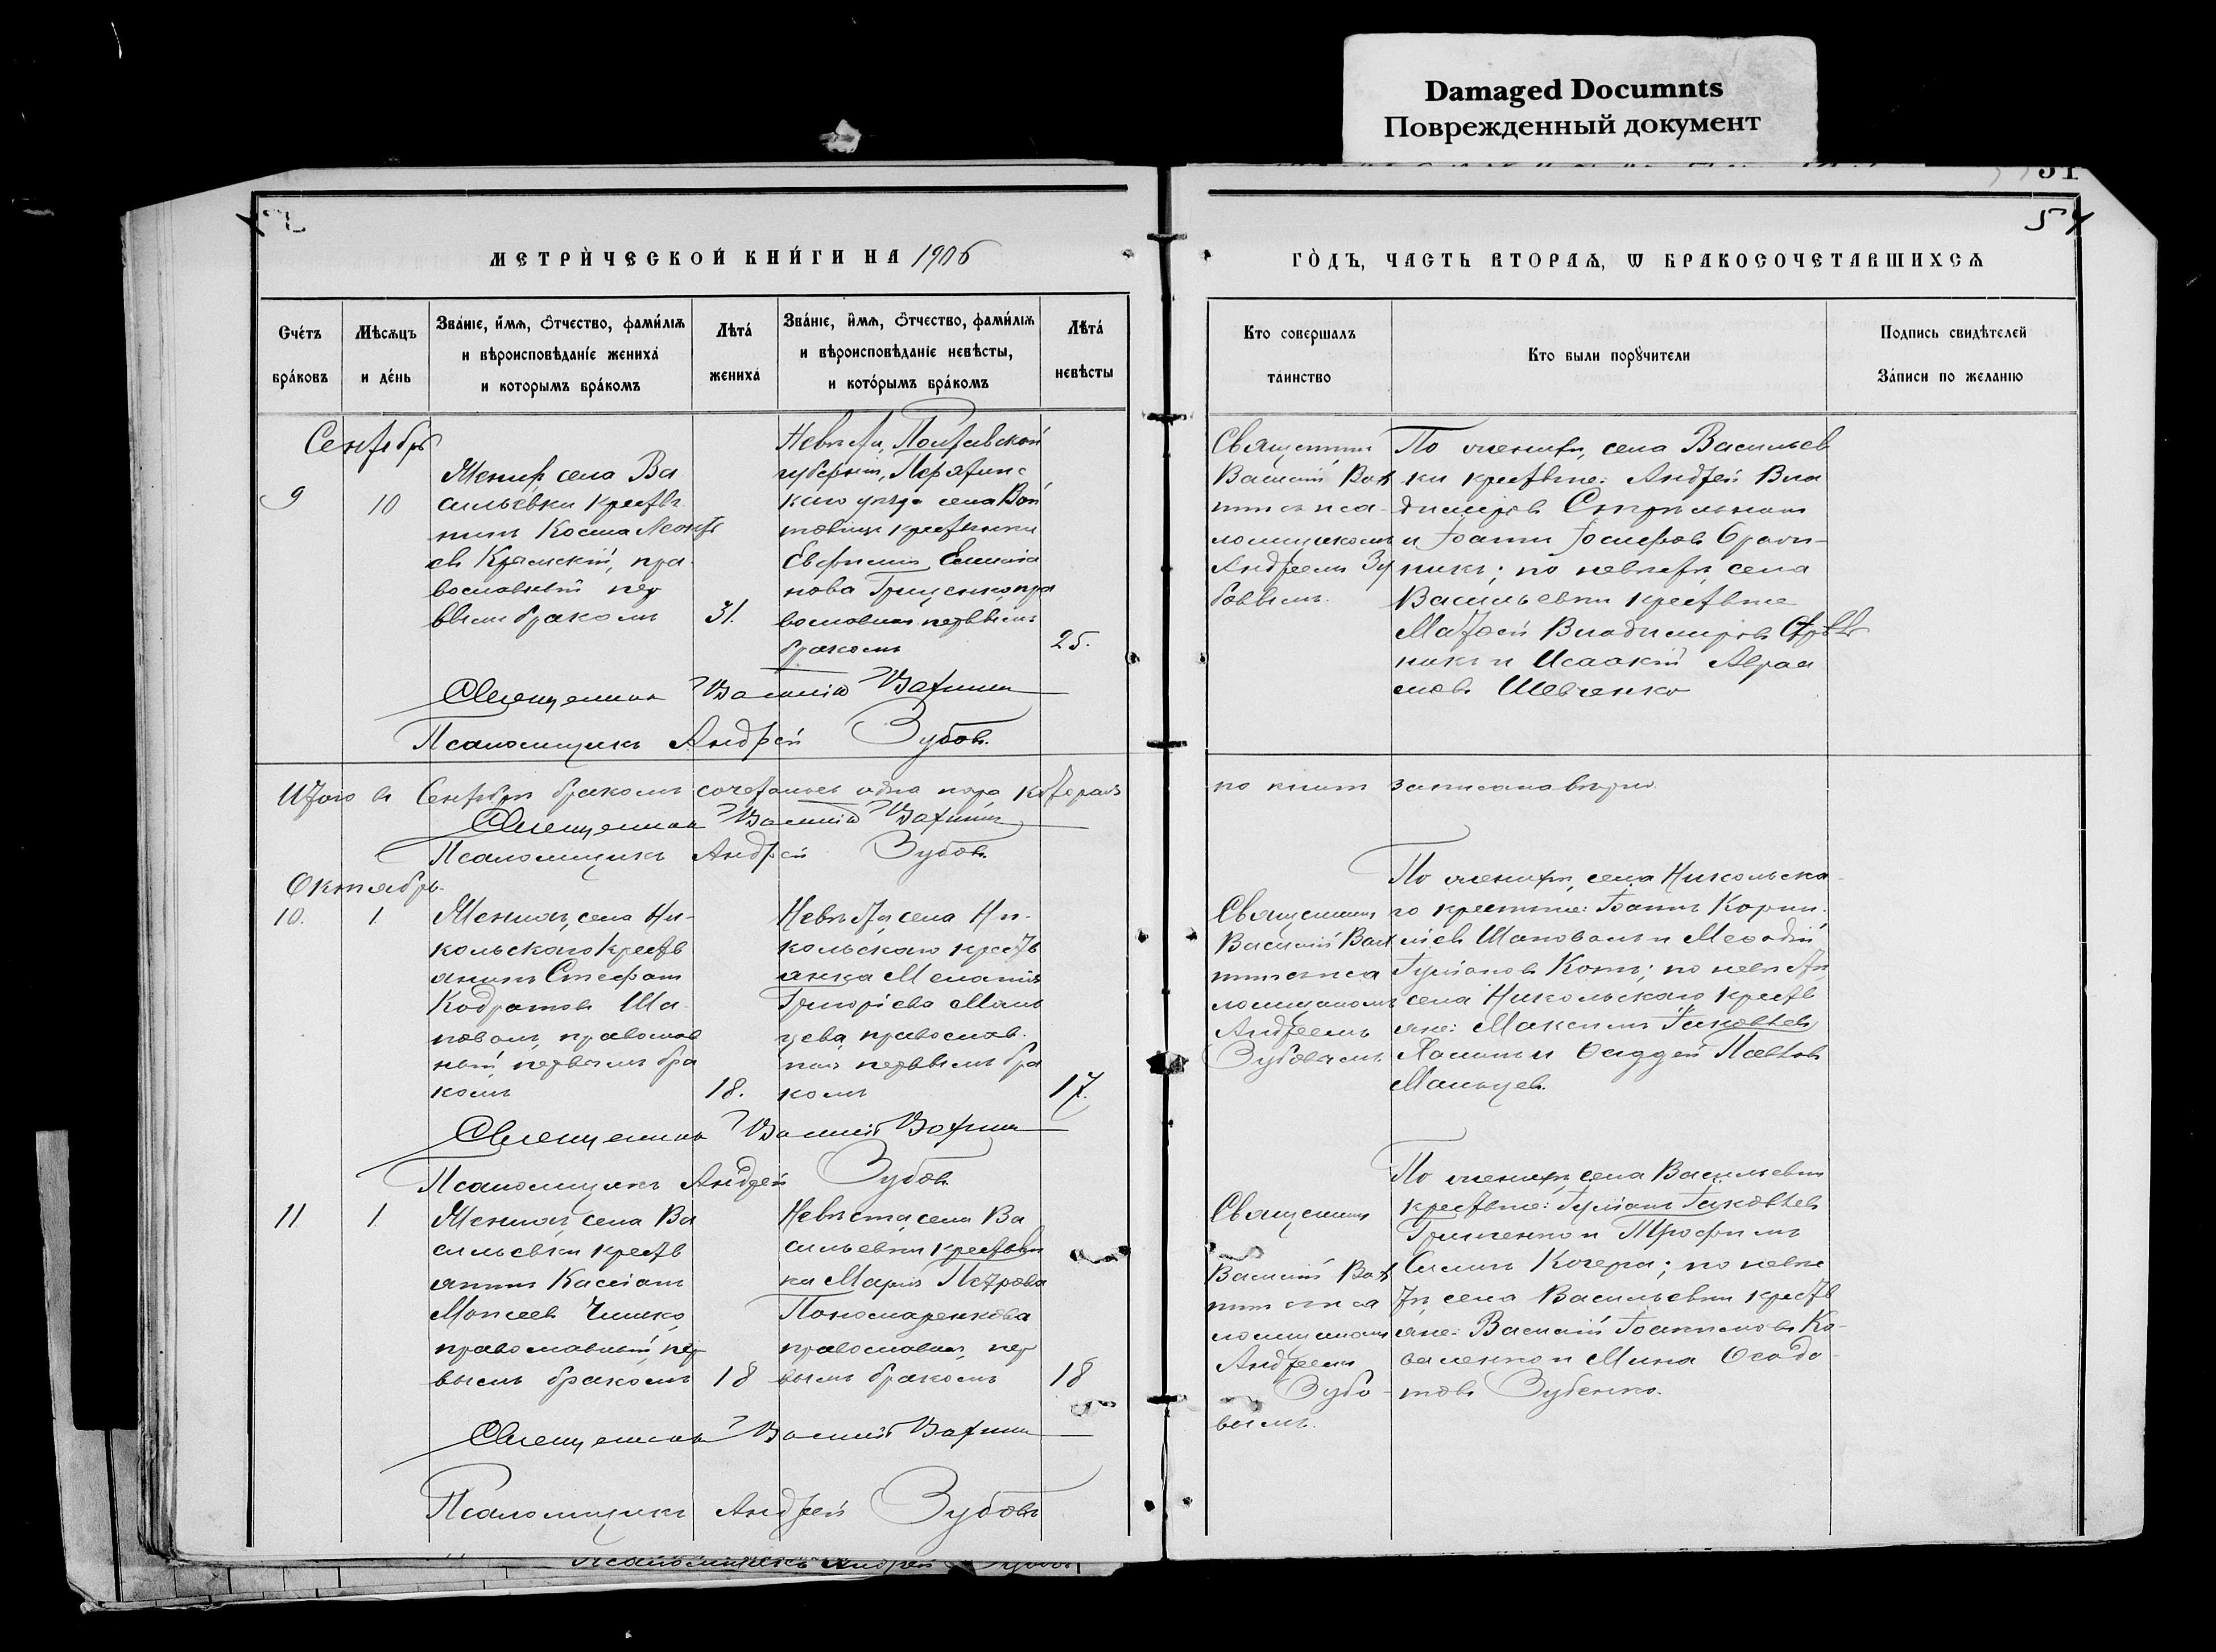 Damaged Documnts
Поврежденный документ
51
54
МЕТРИЧЕСКОЙ КНИГИ НА 1906
ГОДЪ, ЧАСТЬ ВТОРАЯ, Ѡ БРАКОСОЧЕТАВШИХСЯ
Счетъ браковъ
Мѣсяцъ и день
Званіе, имя, отчество, фамилія
и вѣроисповѣданіе жениха
и которымъ бракомъ
Лѣта жениха
Званіе, имя, отчество, фамилія
и вѣроисповѣданіе невѣсты,
и которымъ бракомъ
Лѣта невѣсты
Кто совершалъ таинство
Кто были порꙋчители
Подпись свидѣтелей
Записи по желанію
Сентябрь
9
10
Женихъ, села Ва
сильевки крестья
нинъ Косма Леонть
евъ Крымскій, пра
вославный пер
вымъ бракомъ
31.
Невѣста, Полтавской
губерніи, Пирятинс
каго уѣзда села
крестьянка
Евфимія
нова Гриценко, пра
вославная первымъ
бракомъ
25.
Священник
Василій
псаломщикомъ
Андреемъ Зу
бовымъ.
По женихѣ, села Васильев
ки крестьяне: Андрей Вла
димировъ
и Іоаннъ Іосифовъ
никъ; по невѣстѣ, села
Васильевки крестьяне
Матѳей Владимировъ
никъ и Исаакій Авраа
мовъ Шевченко
Священник Василій
Псаломщикъ Андрей Зубовъ.
Итого въ Сентябрѣ бракомъ сочеталась одна пара которая
по книгѣ записана вѣрно.
Священник Василій
Псаломщикъ Андрей Зубовъ.
Октябрь.
10.
1.
Женихъ, села Ни-
кольскаго крестья
янинъ Стефанъ
Кодратовъ Ша-
повалъ, православ
ный, первымъ бра
комъ
18.
Невѣста, села Ни-
кольскаго крестья
янка Меланія
Григорьева Маль
цева, православ-
ная первымъ бра
комъ
17.
Священник
Василій
псаломщикомъ
Андреемъ
Зубовымъ
По женихѣ, села Никольска-
го крестьяне: Іоаннъ Корни-
ліевъ Шаповалъ и Меѳодій
Іуліановъ; по невѣстѣ,
села Никольскаго крестья
яне: Максимъ Іаковлев
и Ѳаддей Павловъ
Мальцевъ.
Священник Василій
Псаломщикъ Андрей Зубовъ
11.
1.
Женихъ, села Ва
сильевки крестья
янинъ Кассіанъ
Моисеевъ
православный, пер
вымъ бракомъ
18
Невѣста, села Ва
сильевки крестьян
ка Марія Петрова
Пономаренкова
православная, пер
вымъ бракомъ
18
Священник
Василій
псаломщикомъ
Андреемъ
Зубо-
вымъ.
По женихѣ, села Васильевки
крестьяне: Іуліанъ Іаковлев
Гриценко и Трофимъ
Кочерга; по невѣс
тѣ, села Васильевки крестья
яне: Василій Іоакимовъ Ко-
валенко и Мина Ѳеодо-
товъ Зубенко.
Священник Василій
Псаломщикъ Андрей Зубовъ
Псаломщикъ Андрей Зубовъ